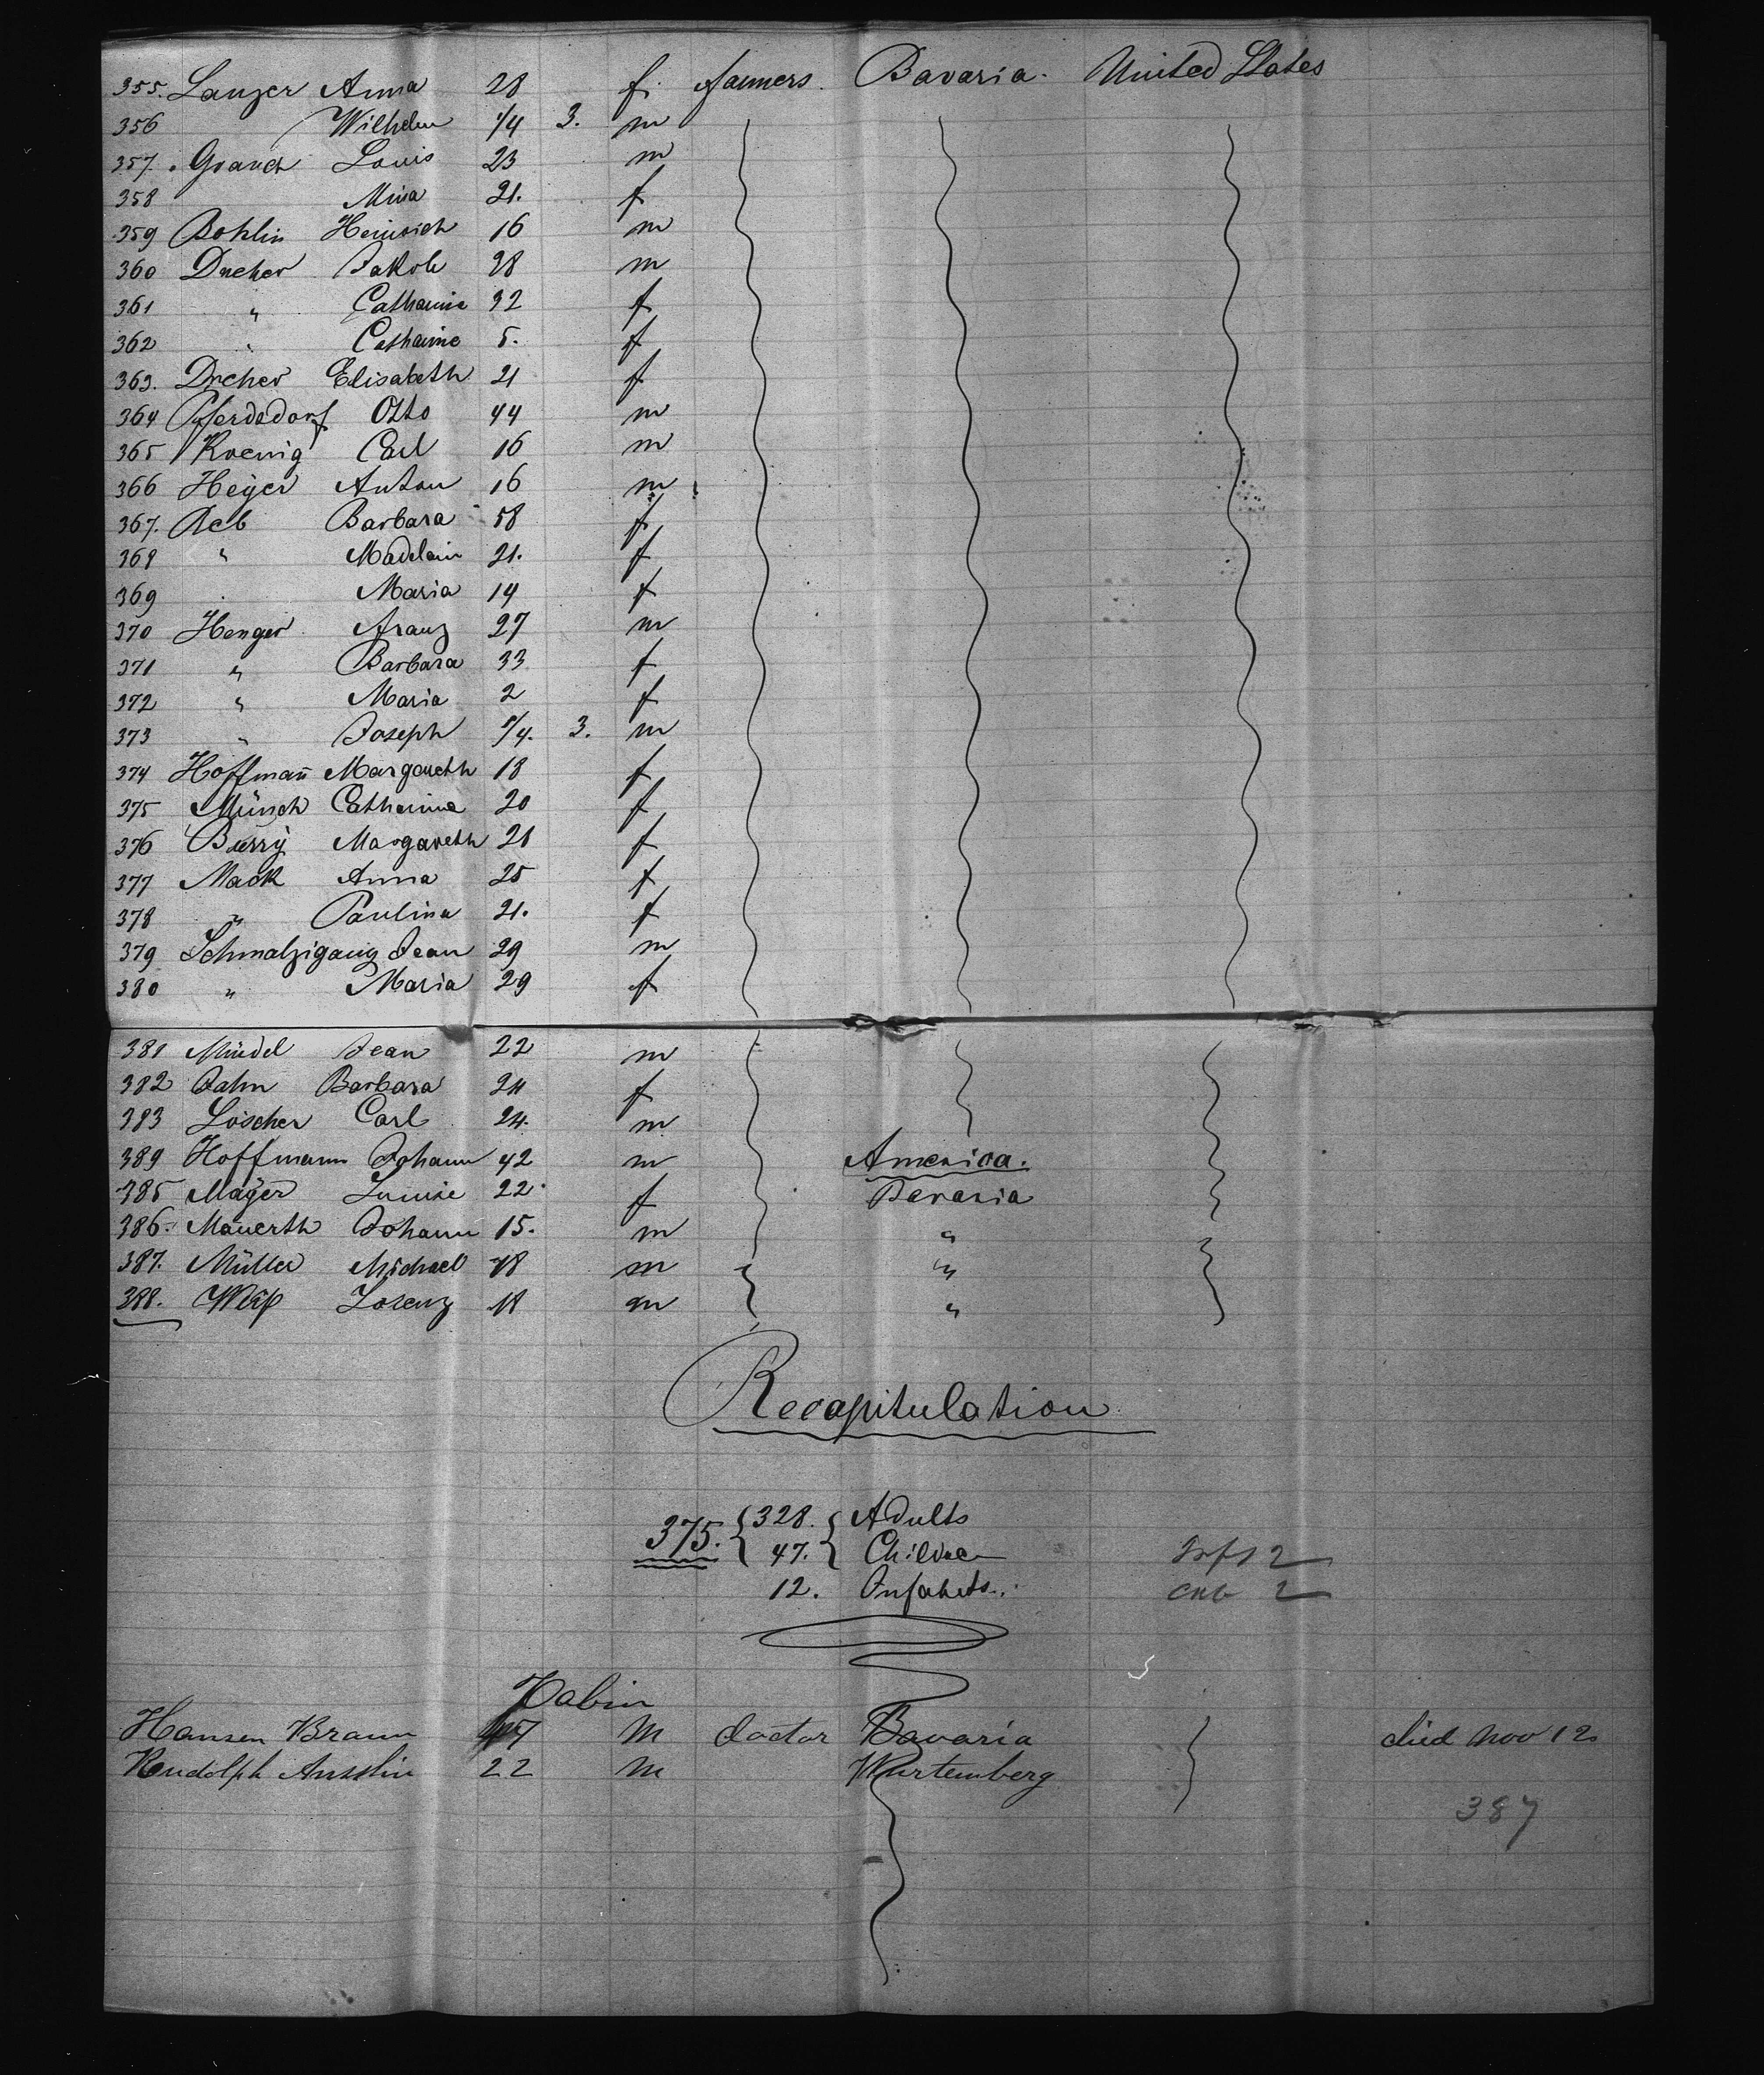 355. Lanzer Anna 28 f. farmers. Bavaria. United States
356 Wilhelm 1/4 3. m
357. Grauch Louis 23 m
358 Mina 21. f
359 Bohlin Heinrich 16 m
360 Dreher Jakob 28 m
361 " Catharine 32 f
362 " Catharine 5. f
363. Dreher Elisabeth 21 f
364 Pferdsdorf Otto 44 m
365 Koenig Carl 16 m
366 Heyer Anton 16 m
367. Reb Barbara 58 f
368 " Madelain 21. f
369 Maria 14 f
370 Henger Franz 27 m
371 " Barbara 33 f
372 " Maria 2 f
373 " Joseph 1/4. 3. m
374 Hoffmann̄ Margareth 18 f
375 Münch Catharina 20 f
376 Margareth 21 f
377 Mack Anna 25 f
378 " Paulina 21. f
379 Schmalzigang Jean 29 m
380 " Maria 29 f
381 Mündel Jean 22 m
382 Jahn Barbara 24 f
383 Löscher Carl 24. m
389 Hoffmann Johann 42 m America.
385 Mayer Louise 22 f Bavaria
386. Mauerth Johann 15. m "
387. Müller Michael 18 m "
388. Lorenz 18 m "
Recapitulation
375. { 328. } Adults
47. Children
12. Infants. Infs 2
2
Cabin
Hansen Braun 47 M doctor Bavaria died Nov 12
Rudolph 22 M Wurtemberg
387